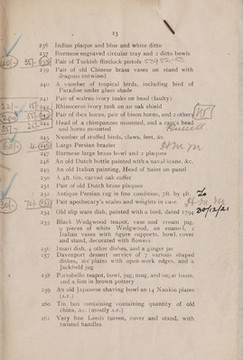 13
236 Indian plaque and blue and white ditto
237 Burmese engraved circular tray and 2 ditto bowls
238 Pair of Turkish flintlock pistols
239 Pair of old Chinese bronze vases on stand with
dragons entwined
240 A number of tropical birds, including bird of
Paradise under glass shade
241 Pair of walrus ivory tusks on head (faulty)
242 Rhinoceros ivory tusk on an oak shield
243 Pair of ibex horns, pair of bison horns, and 2 others
244 Head of a chimpanzee mounted, and a ram's head
and horns mounted
245 Number of stuffed birds, claws, feet, &c.
246 Large Persian brazier
247 Burmese large brass bowl and 2 plaques
248 An old Dutch bottle painted with a naval scene, &c.
249 An old Italian painting, Head of Saint on panel
250 A 4ft. 6in. carved oak coffer
251 Pair of old Dutch brass plaques
252 Antique Persian rug in fine condition, 7ft. by 4ft.
253 Pair apothecary's scales and weights in case
254 Old slip ware dish, painted with a bird, dated 1794
30/12/21
255 Black Wedgwood teapot, vase and cream jug,
9 pieces of white Wedgwood, an enamel, 2
Italian vases with figure supports, bowl, cover
and stand, decorated with flowers
256 Imari dish, 4 other dishes, and a ginger jar
257 Davenport dessert service of 7 various shaped
dishes, six plates with open-work edges, and a
Jackfield jug
258 Portobello teapot, bowl, jug, mug, and sugar basin,
and a lion in brown pottery
259 An old Japanese shaving bowl an 14 Nankin plates
(A.F.)
260 Tin box containing containing quantity of old
china, &c. (mostly A.F.)
261 Very fine Leeds tureen, cover and stand, with
twisted handles